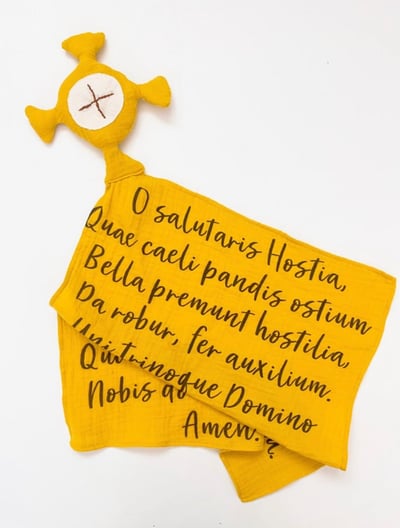 O salutaris Hostia,
Quae caeli pandis ostium
Bella premunt hostilia,
Da robur, fer auxilium.
Uni trinoque Domino
Qui
Nobis
Amen.